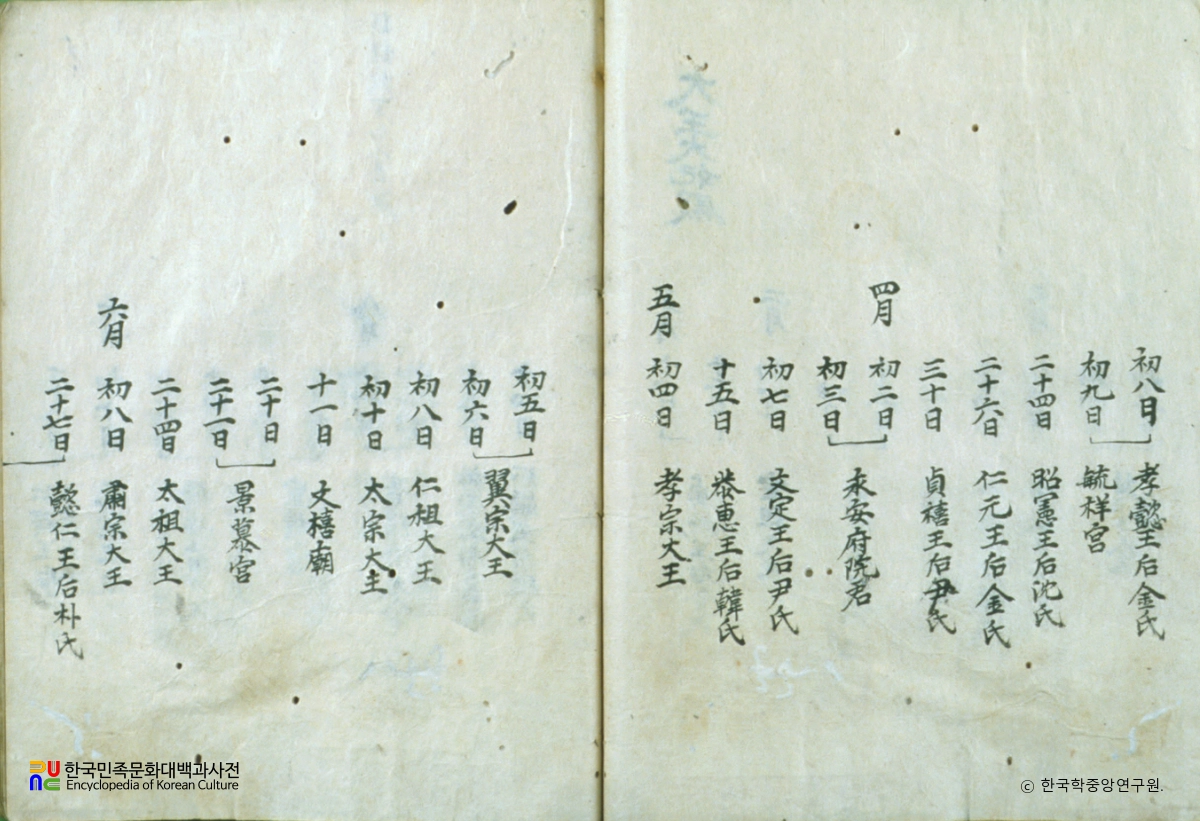 初八日 孝懿王后金氏
初九日 毓祥宮
二十四日 昭憲王后沈氏
二十六日 仁元王后金氏
三十日 貞禧王后尹氏
四月 初二日
初三日 永安府院君
初七日 文定王后尹氏
十五日 恭惠王后韓氏
五月 初四日 孝宗大王
初五日 翼宗大王
初六日
初八日 仁祖大王
初十日 太宗大王
十一日 文禧廟
二十日
二十一日 景慕宮
二十四日 太祖大王
六月 初八日 肅宗大王
二十七日 懿仁王后朴氏
한국민족문화대백과사전
Encyclopedia of Korean Culture
ⓒ 한국학중앙연구원.